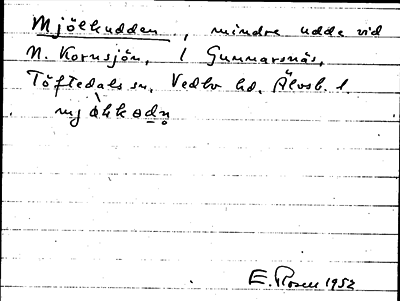 Mjölkudden, mindre udde vid
N. Kornsjön, i Gunnarsnäs,
Töftedals sn. Vedbo hd. Älvsb. l.
E. Rosell 1952